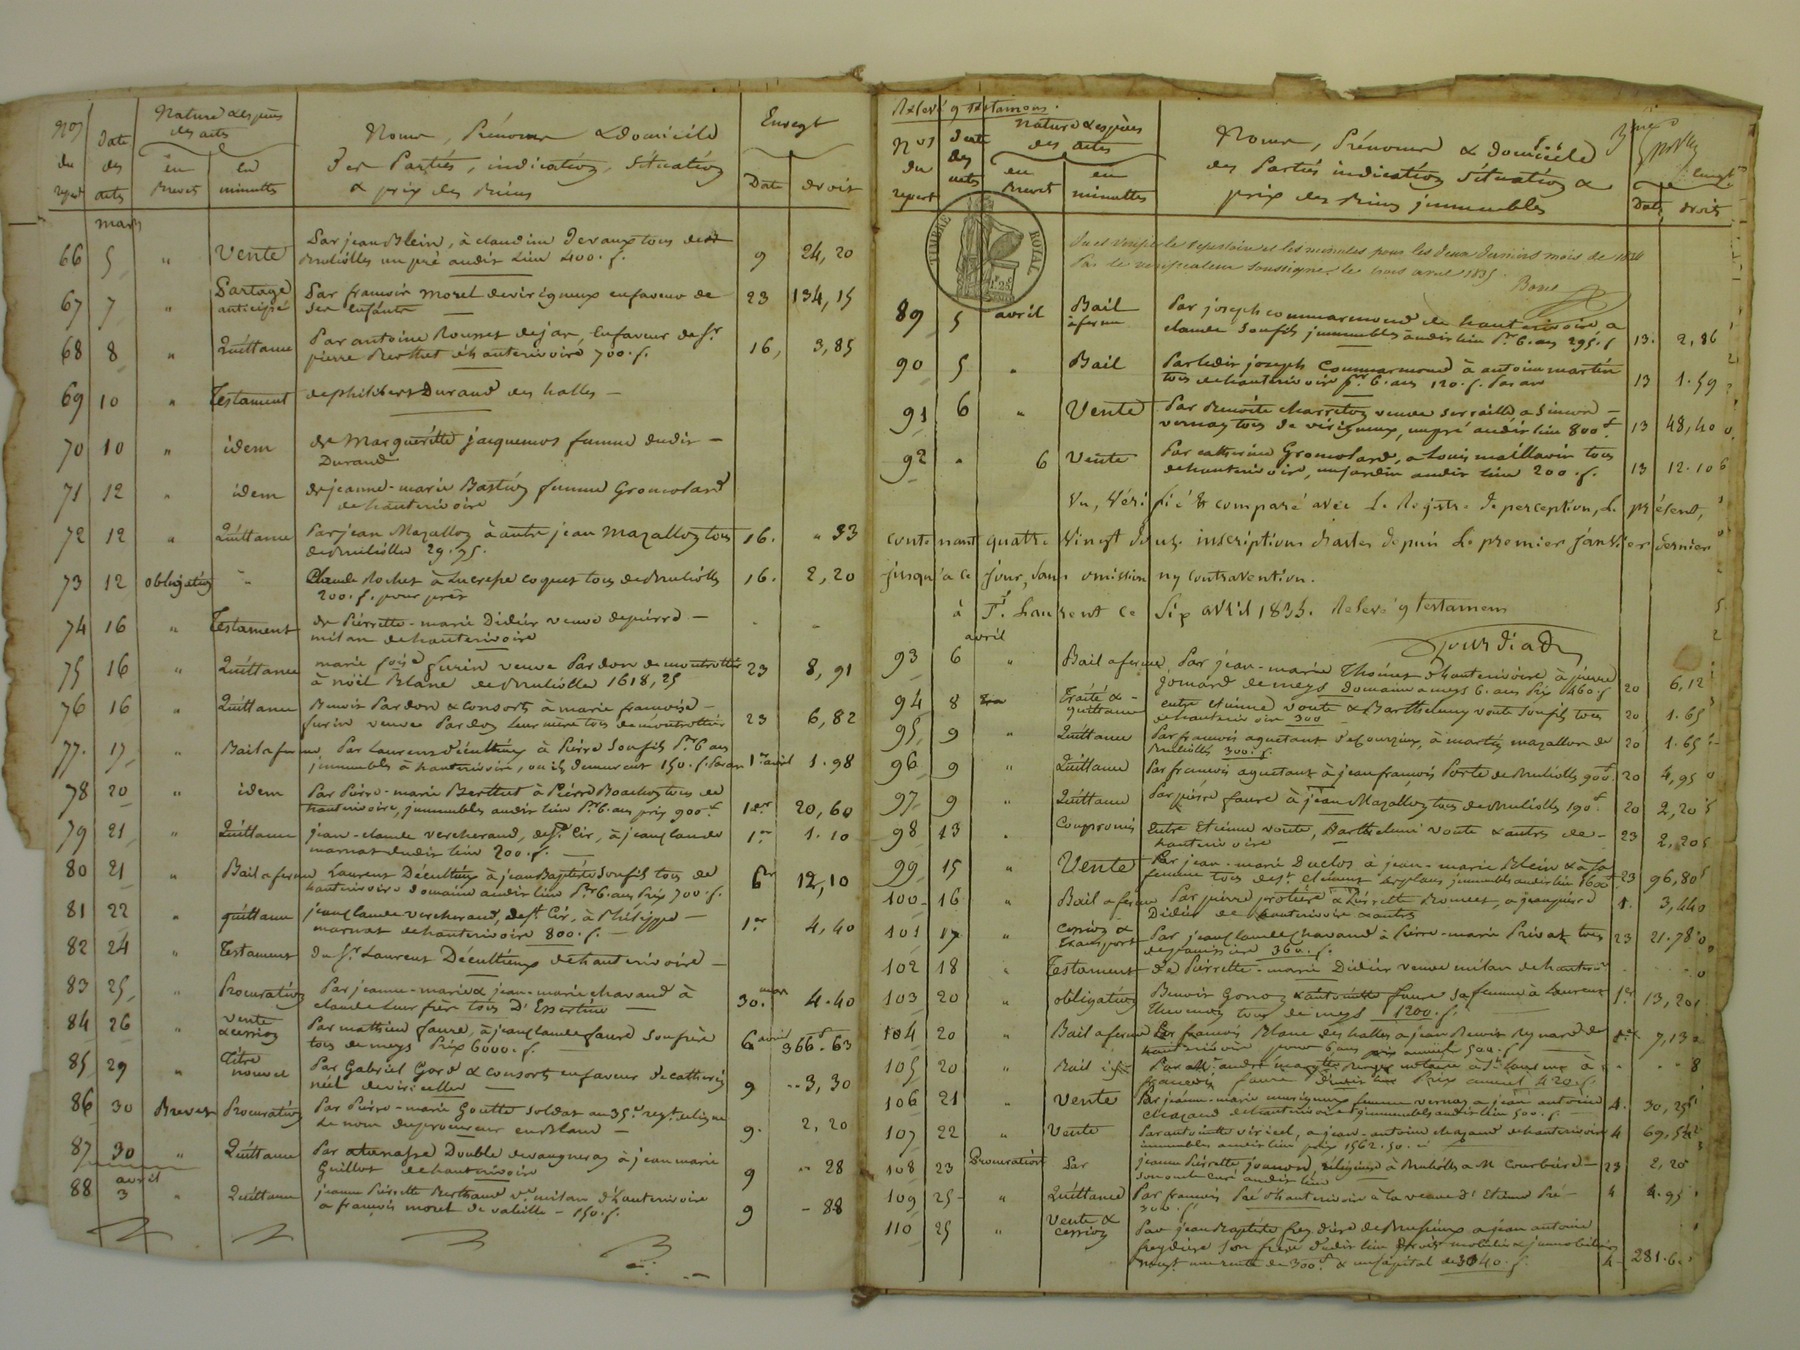 Nos du repert
Date des actes
Nature & espèces des actes
en Brevet
en minuttes
Noms, Prénoms & domicile
des Parties, indication, Situation
& prix des Biens
Enregt
Date
droit
mars
66 5 " Vente Par jean Blein, à claudine Devaux tous de
Brulioles un pré audit Lieu 400. f. 9 24,20
67 7 " Partage anticipé Par francois morel de virigneux en faveur de
ses enfants 23 134,15
68 8 " Quittance Par antoine Rousset de jas, en faveur de Sr
pierre Berthet d'hauterivoire 700. f. 16, 3,85
69 10 " Testament de philibert Durand des halles —
70 10 " idem de Margueritte jacquemot femme dudit —
Durand
71 12 " idem de jeanne-marie Bastion femme Gromoland
de hauterivoire
72 12 " Quittance Par jean Mazallon à autre jean mazallon tous
de Brulioles 29.75. 16. " 33
73 12 obligation " Claude Rochet à Lucresse coquet tous de Brulioles
200. f. pour prêt 16. 2,20
74 16 " Testament de Pierrette-marie Didier veuve de pierre —
milan de hauterivoire
75 16 " Quittance marie foise furin veuve Pardon de montrottier
à noël Blanc de Brulioles 1618,25 23 8,91
76 16 " Quittance Benoit Pardon & consorts à marie francoise —
furin veuve Pardon leur mère tous de montrottier 23 6,82
77. 17 " Bail a ferme Par Laurent décultieux à Pierre Son fils Pr 6 ans
immeubles à hauterivoire, ou ils demeurent 150. f. Par an 1er avril 1.98
78 20 " idem Par Pierre-marie Berthet à Pierre Boachon tous de
hauterivoire, immeubles audit lieu Pr 6 ans prix 900 f 1er 20,60
79 21 " Quittance jean-claude vercherand, de St Cir, à jean claude
marnas dudit lieu 200. f. — 1er 1.10
80 21 " Bail a ferme Laurent Décultieux à jean Baptiste Son fils tous de
hauterivoire domaine audit lieu Pr 6 ans Prix 700. f. 6er 12,10
81 22 " quittance jean claude vercherand, de St Cir, à Philippe —
marnas de hauterivoire 800. f. — 1er 4,40
82 24 " Testament du Sr Laurent Décultieux de hauterivoire —
83 25 " Procuration Par jeanne-marie & jean-marie chavand à
claude leur frère tous d'Essertine — 30. mars 4.40
84 26 " vente & cession Par mathieu faure, à jean claude faure Son frère
tous de meys Prix 6000. f. — 6 avril 366.63
85 29 " Titre nouvel Par Gabriel Gord & consorts en faveur de catherin
néel de viricelles — 9 3,30
86 30 Brevet Procuration Par Pierre-marie Goutte soldat au 35e regt
Le nom du procureur en Blanc — 9. 2,20
87 30 " Quittance Par atanasse Double de vaugneray à jean marie
Guillot de hauterivoire 9 " 28
avril
88 3 " Quittance jeanne Pierrette Berthaud ve milan d'hauterivoire
à françois morel de valeille — 150. f. 9 - 88
Relevé 9 testamens.
Nos du repert
date des actes
Nature & espèces des actes
en Brevet
en minuttes
Noms, Prénoms & domicile
des Parties indication Situation &
prix des Biens immeubles
Enregt
Date
droit
TIMBRE ROYAL
1f 25
Vu et vérifié le répertoire et les minutes pour les deux derniers mois de 1834
Par le vérificateur Soussigné le trois avril 1835.
89 5 avril Bail à ferme Par joseph commarmond de hauterivoire a
claude Son fils immeubles audit lieu Pr 6. ans 295. f 13. 2,86
90 5 " Bail Par ledit joseph Commarmond à antoine martin
tous de hauterivoire pr 6. ans 120. f. Par an 13 1.59
91 6 " Vente Par Benoite charreton veuve serraille a Simon —
vernay tous de virigneux, un pré audit lieu 800 f. 13 48,40
92 " 6 Vente Par catherine Gromoland, a Louis maillavin tous
de hauterivoire, un jardin audit lieu 200. f. 13 12.10
Vu, Vérifié & comparé avec Le Registre de perception, Le présent,
contenant quatre vingt douze inscriptions d'actes depuis Le premier Janvier dernier
jusqu'à ce jour, sans omission ny contravention.
à St Laurent ce Six avril 1835. Relevé 9 testamens
avril
93 6 " Bail a ferme Par jean-marie Thomas d'hauterivoire à pierre
jomard de meys domaine a meys 6. ans Prix 460. f 20 6,12
94 8 Traité & quittance entre etienne voute & Barthelemy voute Son fils tous
de hauterivoire 300 20 1.65
95 9 " Quittance Par francois aquetant d', à martin mazallon de
Brulioles 300. f. 20 1.65
96 9 " Quittance Par francois aquetant à jean francois Porte de Brulioles 900 f. 20 4,95
97 9 " Quittance Par pierre faure à jean Mazallon tous de Brulioles 190 f. 20 2,20
98 13 " Compromis Entre Etienne voute, Barthelemi voute & autres de —
hauterivoire 23 2,20
99 15 " Vente Par jean-marie Duclos à jean-marie Blein & a sa
femme tous de St clement immeubles audit lieu 1600 f. 23 96,80
100 16 " Bail a ferme Par pierre protière & Pierrette Romeet, a jean pierre
Didier de hauterivoire & autres 1. 3,440
101 17 " Cession & Transport Par jean claude chavand à Pierre-marie Privat tous
360. f. 23 21.78
102 18 " Testament de Pierrette-marie Didier veuve milan de hauterive
103 20 " obligation Benoit Gonon & antoinette faure Sa femme à Laurent
Thevenon tous de meys 1200. f. 1er 13,20
104 20 " Bail a ferme Par francois Blanc des halles a jean Benoit Reynard de
hauterivoire pour 6 ans prix annuel 500. f. 1er 7,13
105 20 " Bail Par Mr andré notaire à St Laurent à
francois faure dudit lieu Prix annuel 420. f.
106 21 " Vente Par jeanne-marie femme vernay a jean antoine
chazaud de hauterivoire immeubles audit lieu 500. f. — 4. 30,25
107 22 " Vente Par antoinette viricel, a jean-antoine chazaud de hauterivoire
immeubles audit lieu prix 1562.50. 4 69,54
108 23 Procuration Par jeanne Pierrette jouanon, religieuse à Brulioles a M Courbière —
Son oncle curé audit lieu 23 2,20
109 25 " Quittance Par francois Pré d'hauterivoire à la veuve d'Etienne Pré —
300. f. 4 4.95
110 25 " Vente & cession Par jean Baptiste freydière de Brussieux a jean antoine
freydière Son frère dudit lieu droits mobiliers & immobiliers
moyt une rente de 300 f. & un capital de 3040. f. 4 281.6